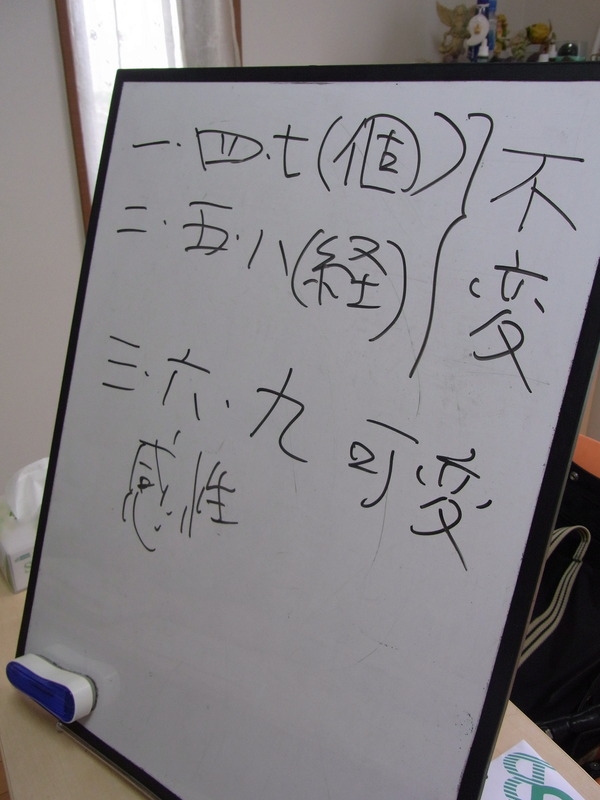 一・四・七(個)
二・五・八(経)
不変
三・六・九 可変
感性